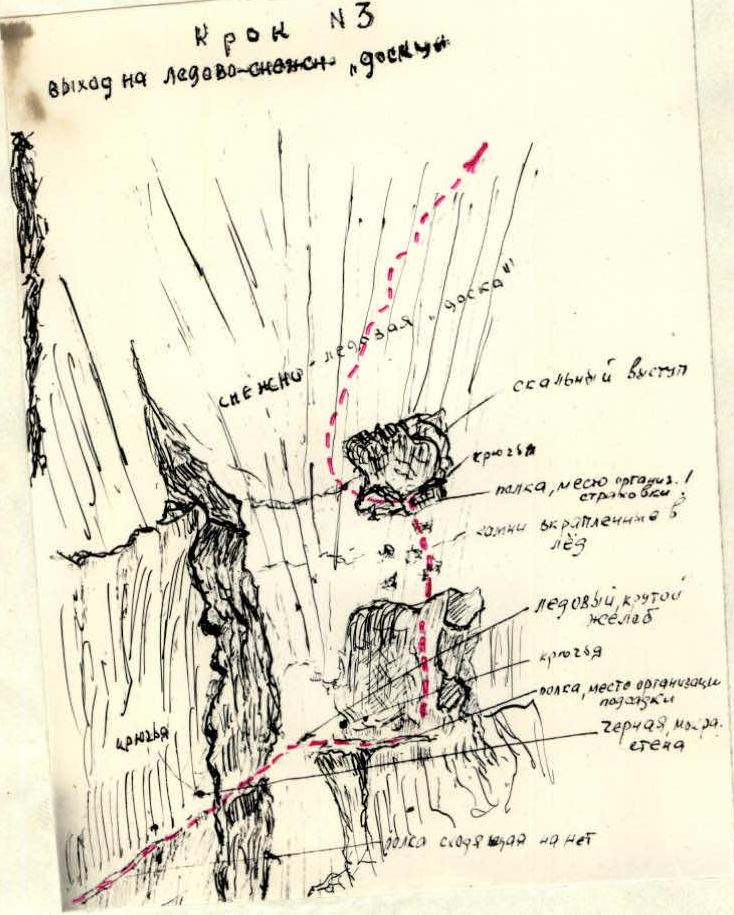 Крок N3
выход на ледово-снежн. „доску"
снежно-ледовая „доска"
скальный выступ
крючья
полка, место организ.
страховки
камни вкрапленные в
лёд
ледовый, крутой
желоб
крючья
полка, место организаци
подсадки
черная, мокра.
стена
крючья
полка сходящая на нет